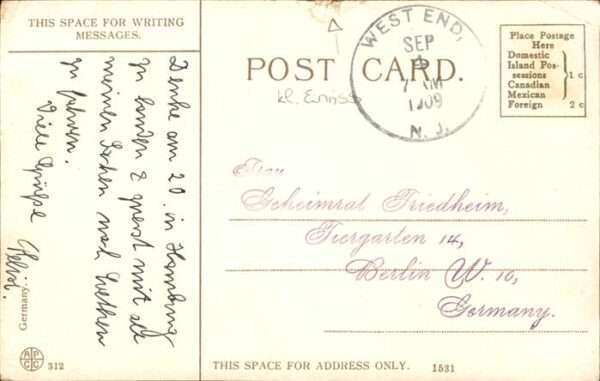 THIS SPACE FOR WRITING
MESSAGES.
Denke am 20. in Hamburg
zu landen & zuerst mit all
meinen Sachen nach
zu fahren.
Viele Grüsse
Germany.
A P C C 312
POST CARD.
WEST END,
SEP
AM
1909
N. J.
Place Postage
Here
Domestic
Island Pos-
sessions
Canadian
Mexican
1 c
Foreign 2 c
Frau
Geheimrat Friedheim,
Tiergarten 14,
Berlin W. 10,
Germany.
THIS SPACE FOR ADDRESS ONLY. 1531